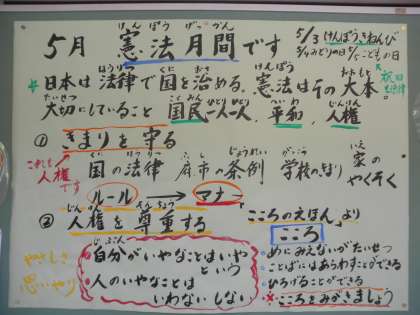 5月 憲法月間です
けんぽう げっかん
5/3 けんぽうきねんび
5/4 みどりの日 5/5 こどもの日
日本は法律で国を治める。憲法はその大本。
ほうりつ くに おさ けんぽう おおもと
大切にしていること 国民一人一人、平和、人権
たいせつ こくみん ひとり ひとり へいわ じんけん
① きまりを守る
これも人権です
国の法律 府市の条例 学校のきまり 家のやくそく
くに ほうりつ ふ し じょうれい がっこう いえ
ルール → マナー
② 人権を尊重する
じんけん そんちょう
「こころのえほん」より
やさしさ
思いやり
・自分がいやなことはいやという
じぶん
・人のいやなことはいわない しない
こころ
・めにみえないがたいせつ
・ことばにはあらわすことができる
・ひろげることができる
・こころをみがきましょう